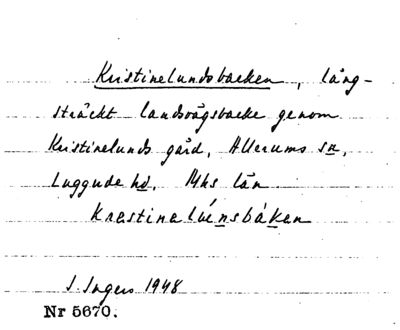 Kristinelundsbacken, lång-
sträckt landsvägsbacke genom
Kristinelunds gård, Allerums sn,
Luggude hd. Mhs län
Krestinelúensbáken
I. Ingers 1948
Nr 5670.